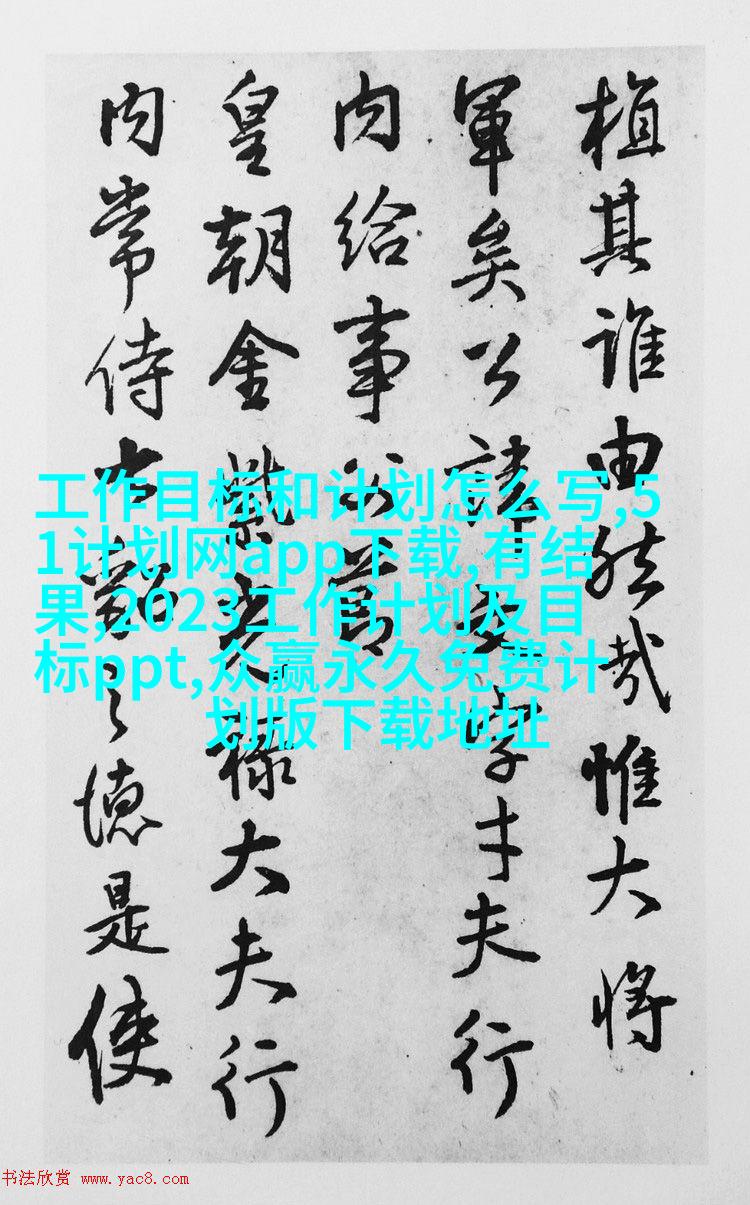 植其誰由然哉惟大將
軍矣公諱文字才夫行
内給事
皇朝金紫光祿大夫行
内常侍德是使
工作目标和计划怎么写,5
1计划网app下载,有结
果,2023工作计划及目
标ppt,众赢永久免费计
划版下载地址
书法欣赏 www.yac8.com